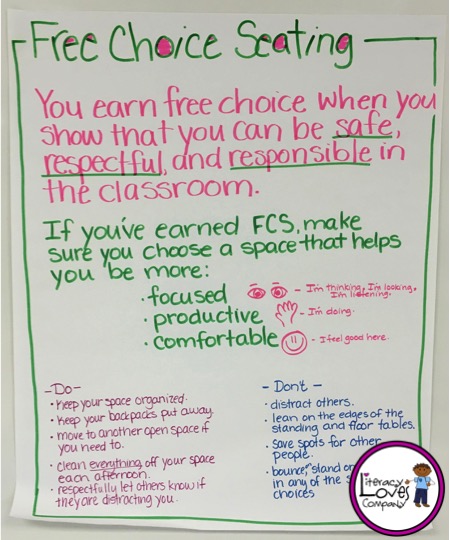 Free Choice Seating
You earn free choice when you
show that you can be safe,
respectful, and responsible in
the classroom.
If you've earned FCS, make
sure you choose a space that helps
you be more:
· focused - I'm thinking, I'm looking,
I'm listening.
· productive - I'm doing.
· comfortable - I feel good here.
- Do -
· keep your space organized.
· keep your backpacks put away.
· move to another open space if
you need to.
· clean everything off your space
each afternoon.
· respectfully let others know if
they are distracting you.
- Don't -
· distract others.
· lean on the edges of the
standing and floor tables.
· save spots for other
people.
· bounce, stand
in any of the
choices
Literacy
Loves
Company